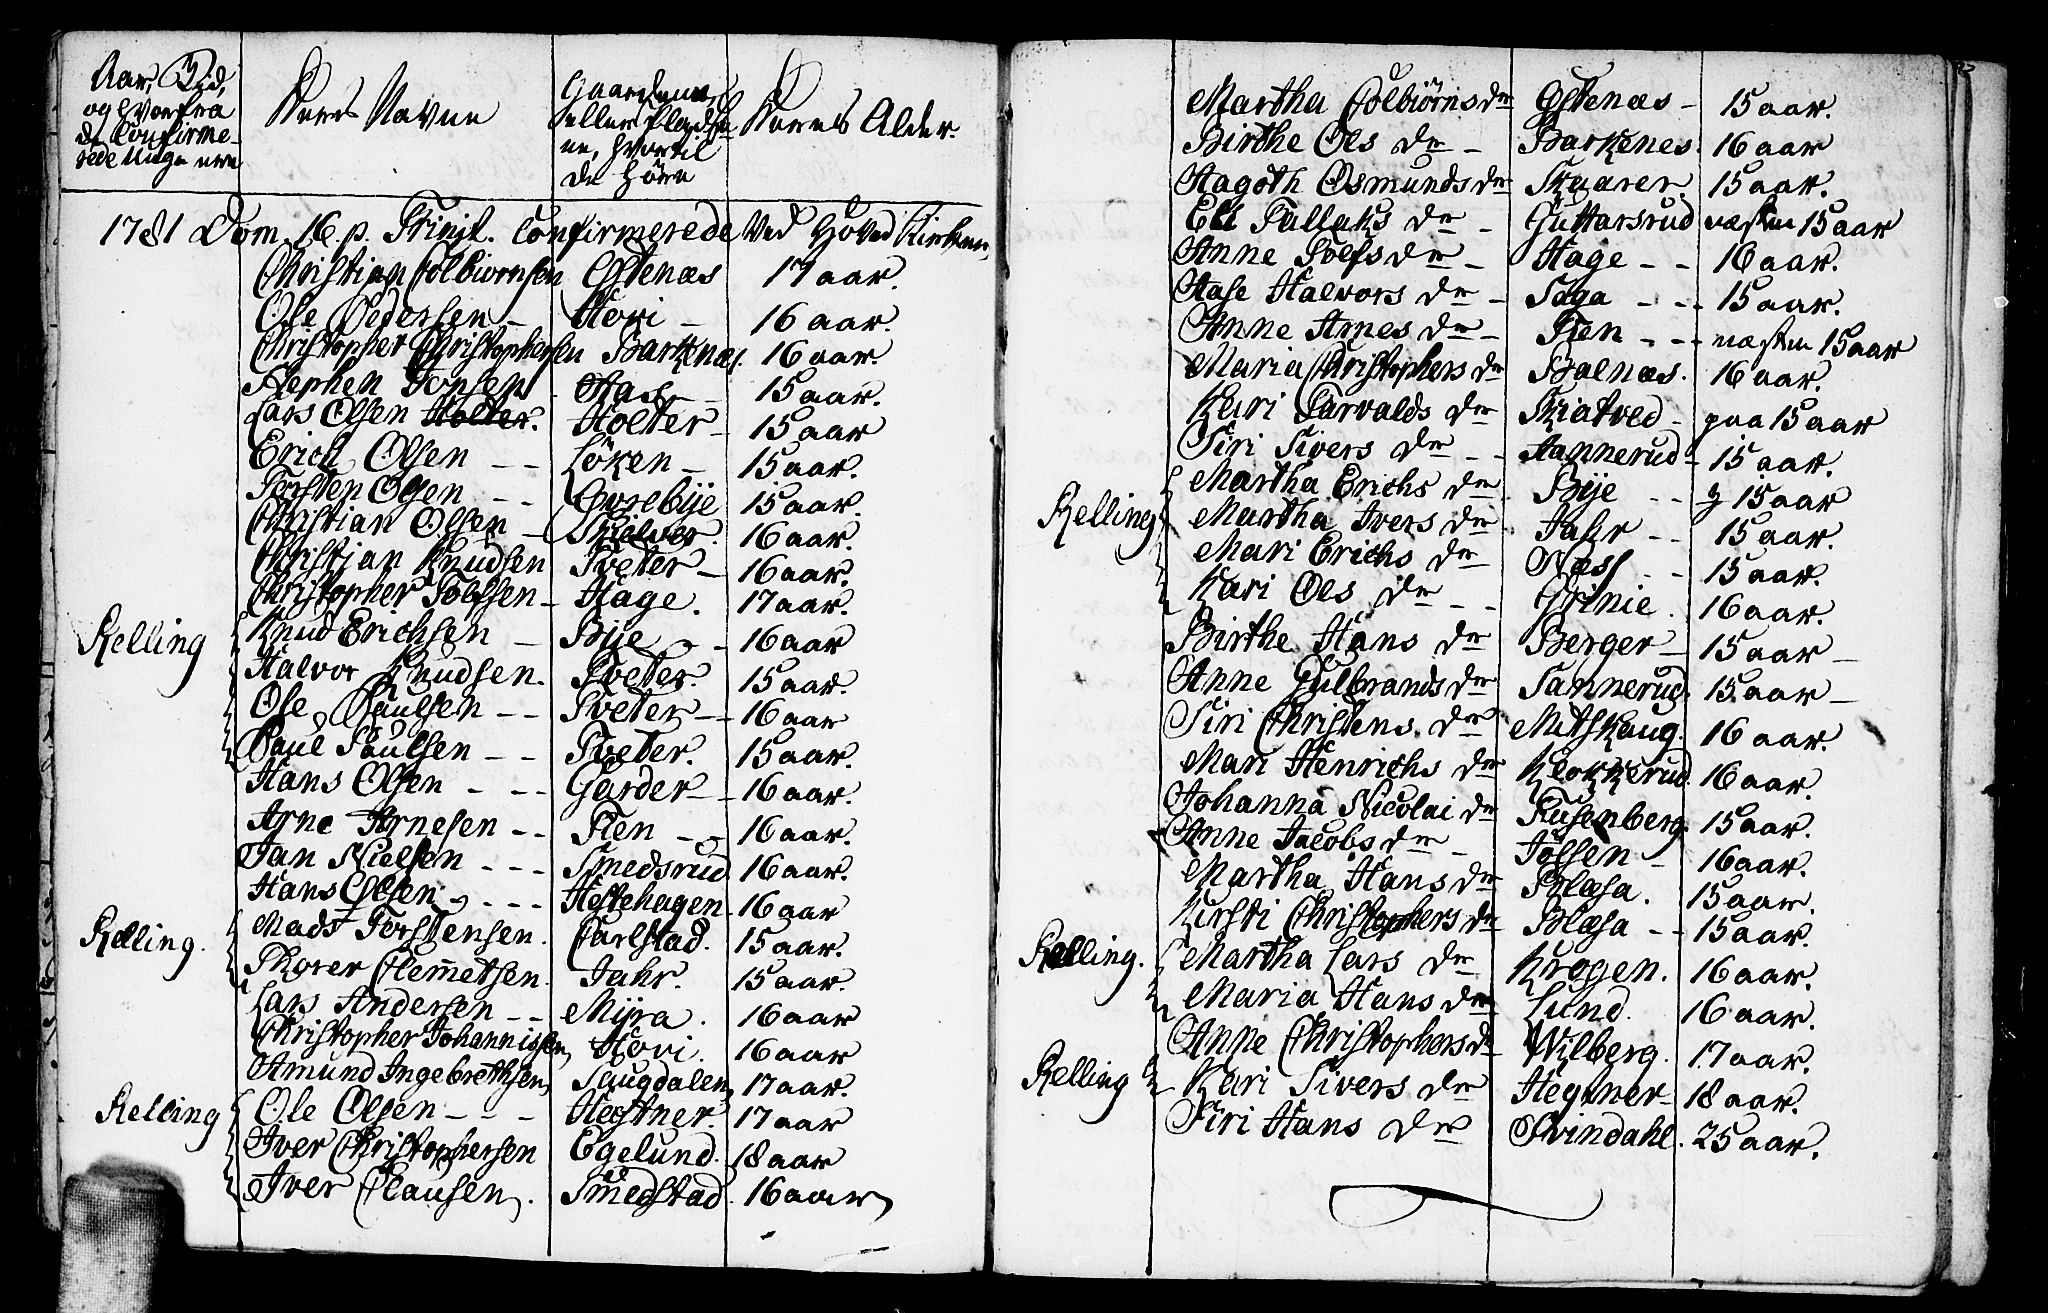 Aar, Tid,
og hvorfra
de Confirme-
rede Unge ere
Deres Navne
Gaardene
eller Pladse
ne, hvortil
de høre
Deres Alder.
1781 Dom. 16. p. Trinit. Confirmerede ved Hoved Kirken,
Christian Colbiørnsen Estenæs 17 aar.
Ole Pedersen - Hovi - 16 aar.
Christopher Christophersen Barkenæs. 16 aar.
Stephen Torsen Has - 15 aar.
Lars Olsen Holter. Holter - 15 aar
Erich Olsen - - Løken - 15 aar.
Torsten Olsen - - Øvrebÿe 15 aar.
Christian Olsen - Skielver. 16 aar.
Christian Knudsen Tveter - 16 aar.
Christopher Tolfsen - Hage. 17 aar.
Relling Knud Erichsen - Bÿe - - 16 aar
Halvor Knudsen. Tveter. 15 aar.
Ole Paulsen - - Tveter - - 16 aar
Paul Paulsen - - Tveter. 15 aar.
Hans Olsen - - - Garder - - 16 aar.
Arne Arnesen - - Tien - - 16 aar.
Jan Nielsen - - - Smedsrud 16 aar.
Hans Olsen - - - Hestehagen - 16 aar
Rælling. Mads Torstensen. Carlstad. 15 aar.
Thorer Clemetsen. Jahr. 15 aar.
Lars Andersen - - Mÿra. 16 aar
Christopher Johannissen, Hovi. 16 aar
Amund Ingebrethsen, Saugdalen, 17 aar.
Relling Ole Olsen - - - Hegtner. 17 aar
Iver Christophersen Egelund. 18 aar
Iver Clausen. Smedstad. 16 aar
Martha Colbiørns dr Estenæs - 15 aar.
Birthe Ols dr - Barkenes. 16 aar
Aagoth Osmunds dr Skaarer. 15 aar.
Eli Tallaks dr - Guttarsrud næsten 15 aar
Anne Tolfs dr - Hage - - 16 aar.
Aase Halvors dr - Saga - - - 15 aar.
Anne Arnes dr - Tien - - - næsten 15 aar
Maria Christophers dr Balnæs. 16 aar.
Kari Tarvalds dr Skiatved - paa 15 aar
Siri Sivers dr - - Hannerud - 15 aar.
Relling Martha Erichs dr. Bÿe - - 15 aar
Martha Ivers dr - Jahr - - 15 aar.
Mari Erichs dr Næss - - 15 aar.
Kari Ols dr - - Grinie. 16 aar.
Birthe Hans dr Berger - 15 aar -
Anne Gulbrands dr Sannerud. 15 aar -
Siri Christens. dr Mitskaug. 16 aar.
Mari Henrichs dr Klokkerud. 16 aar.
Johanna Nicolai dr Rusenberg. 15 aar.
Anne Jacobs dr - Jølsen - 16 aar.
Martha Hans dr Blæsa. 15 aar.
Kirsti Christophers dr Blæsa - - 15 aar.
Relling. Martha Lars dr Krogen. 16 aar.
Maria Hans dr. Lund. 16 aar.
Anne Christophers dr Wilberg. 17 aar.
Relling Kari Sivers dr Hegtner - 18 aar.
Siri Hans dr Svindahl. 25 aar.